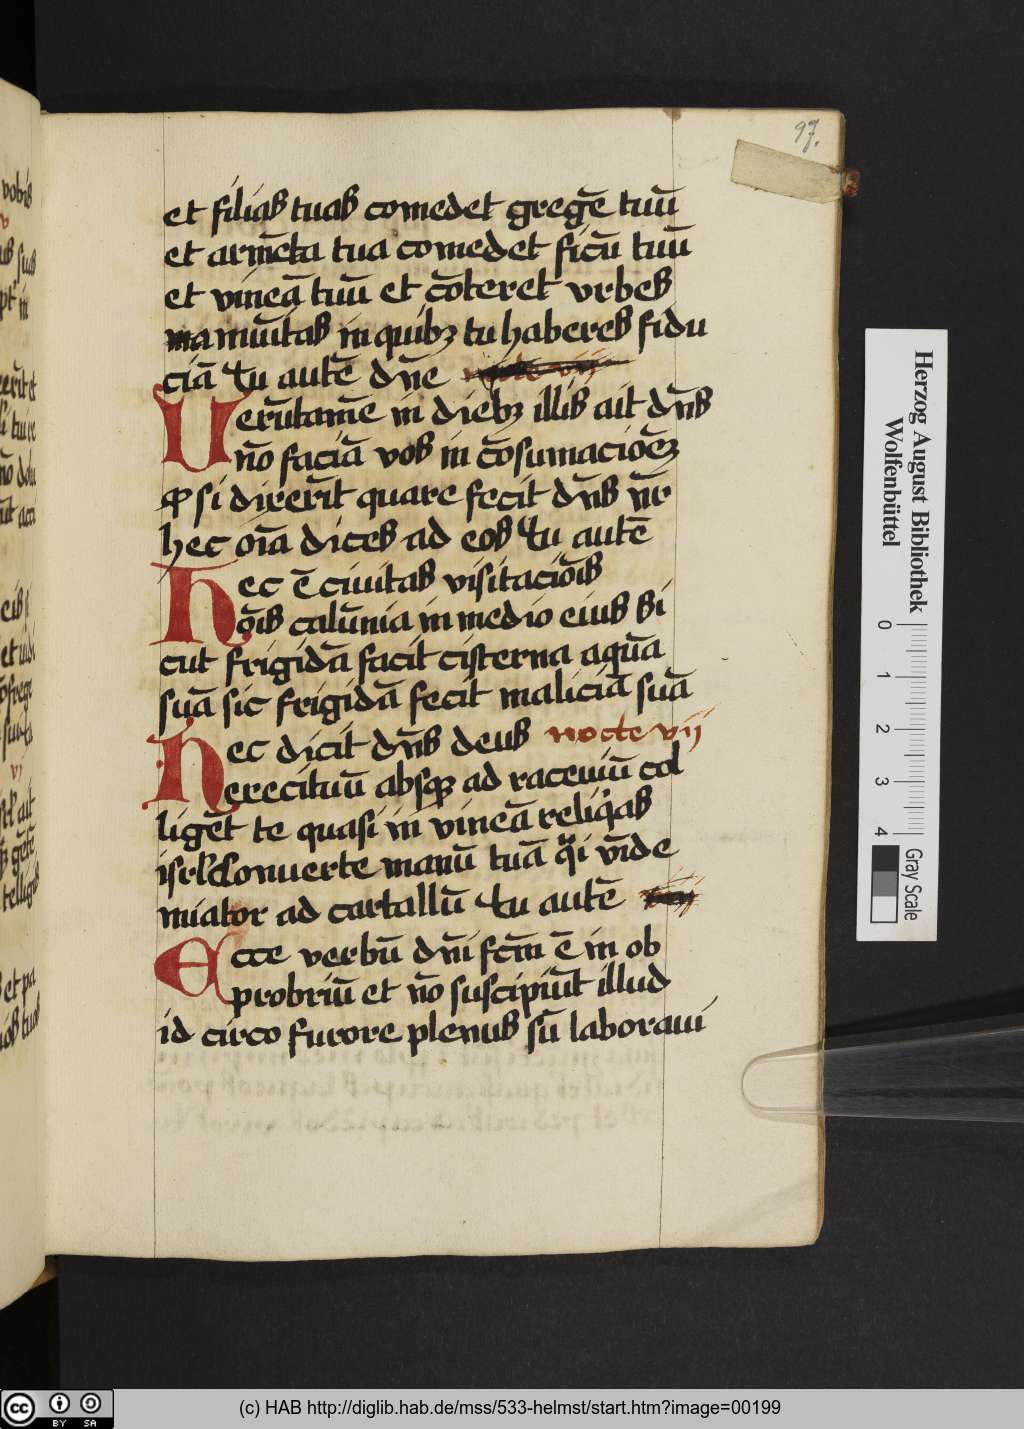 97.
et filias tuas comedet gregē tuū
et armēta tua comedet ficū tuū
et vineā tuū et cōteret vrbes
ma muītas in quibꝫ tu haberes fidu
ciā Tu autē dn̄e
Uerūtamē in diebꝫ illis ait dn̄s
nō faciā vos in cōsumacioēꝫ
ꝙ si dixerīt quare fecit dn̄s nr̄
hec oīa dices ad eos Tu autē
Hec ē ciuitas visitaciōis
ōis calūnia in medio eius Si
cut frigidā facit cisterna aquā
suā sic frigidā fecit maliciā suā
Hec dicit dn̄s deus nocte vij
exercituū absqꝫ ad racemū col
ligēt te quasi in vineā reliqas
isrl Conuerte manū tuā qi vīde
miator ad cartallū Tu autē
Ecce verbū dn̄i fcm̄ ē in ob
probriū et nō suscipiūt illud
id circo furore plenus sū laboraui
Herzog August Bibliothek
Wolfenbüttel
0
1
2
3
4
Gray Scale
cc BY SA
(c) HAB http://diglib.hab.de/mss/533-helmst/start.htm?image=00199